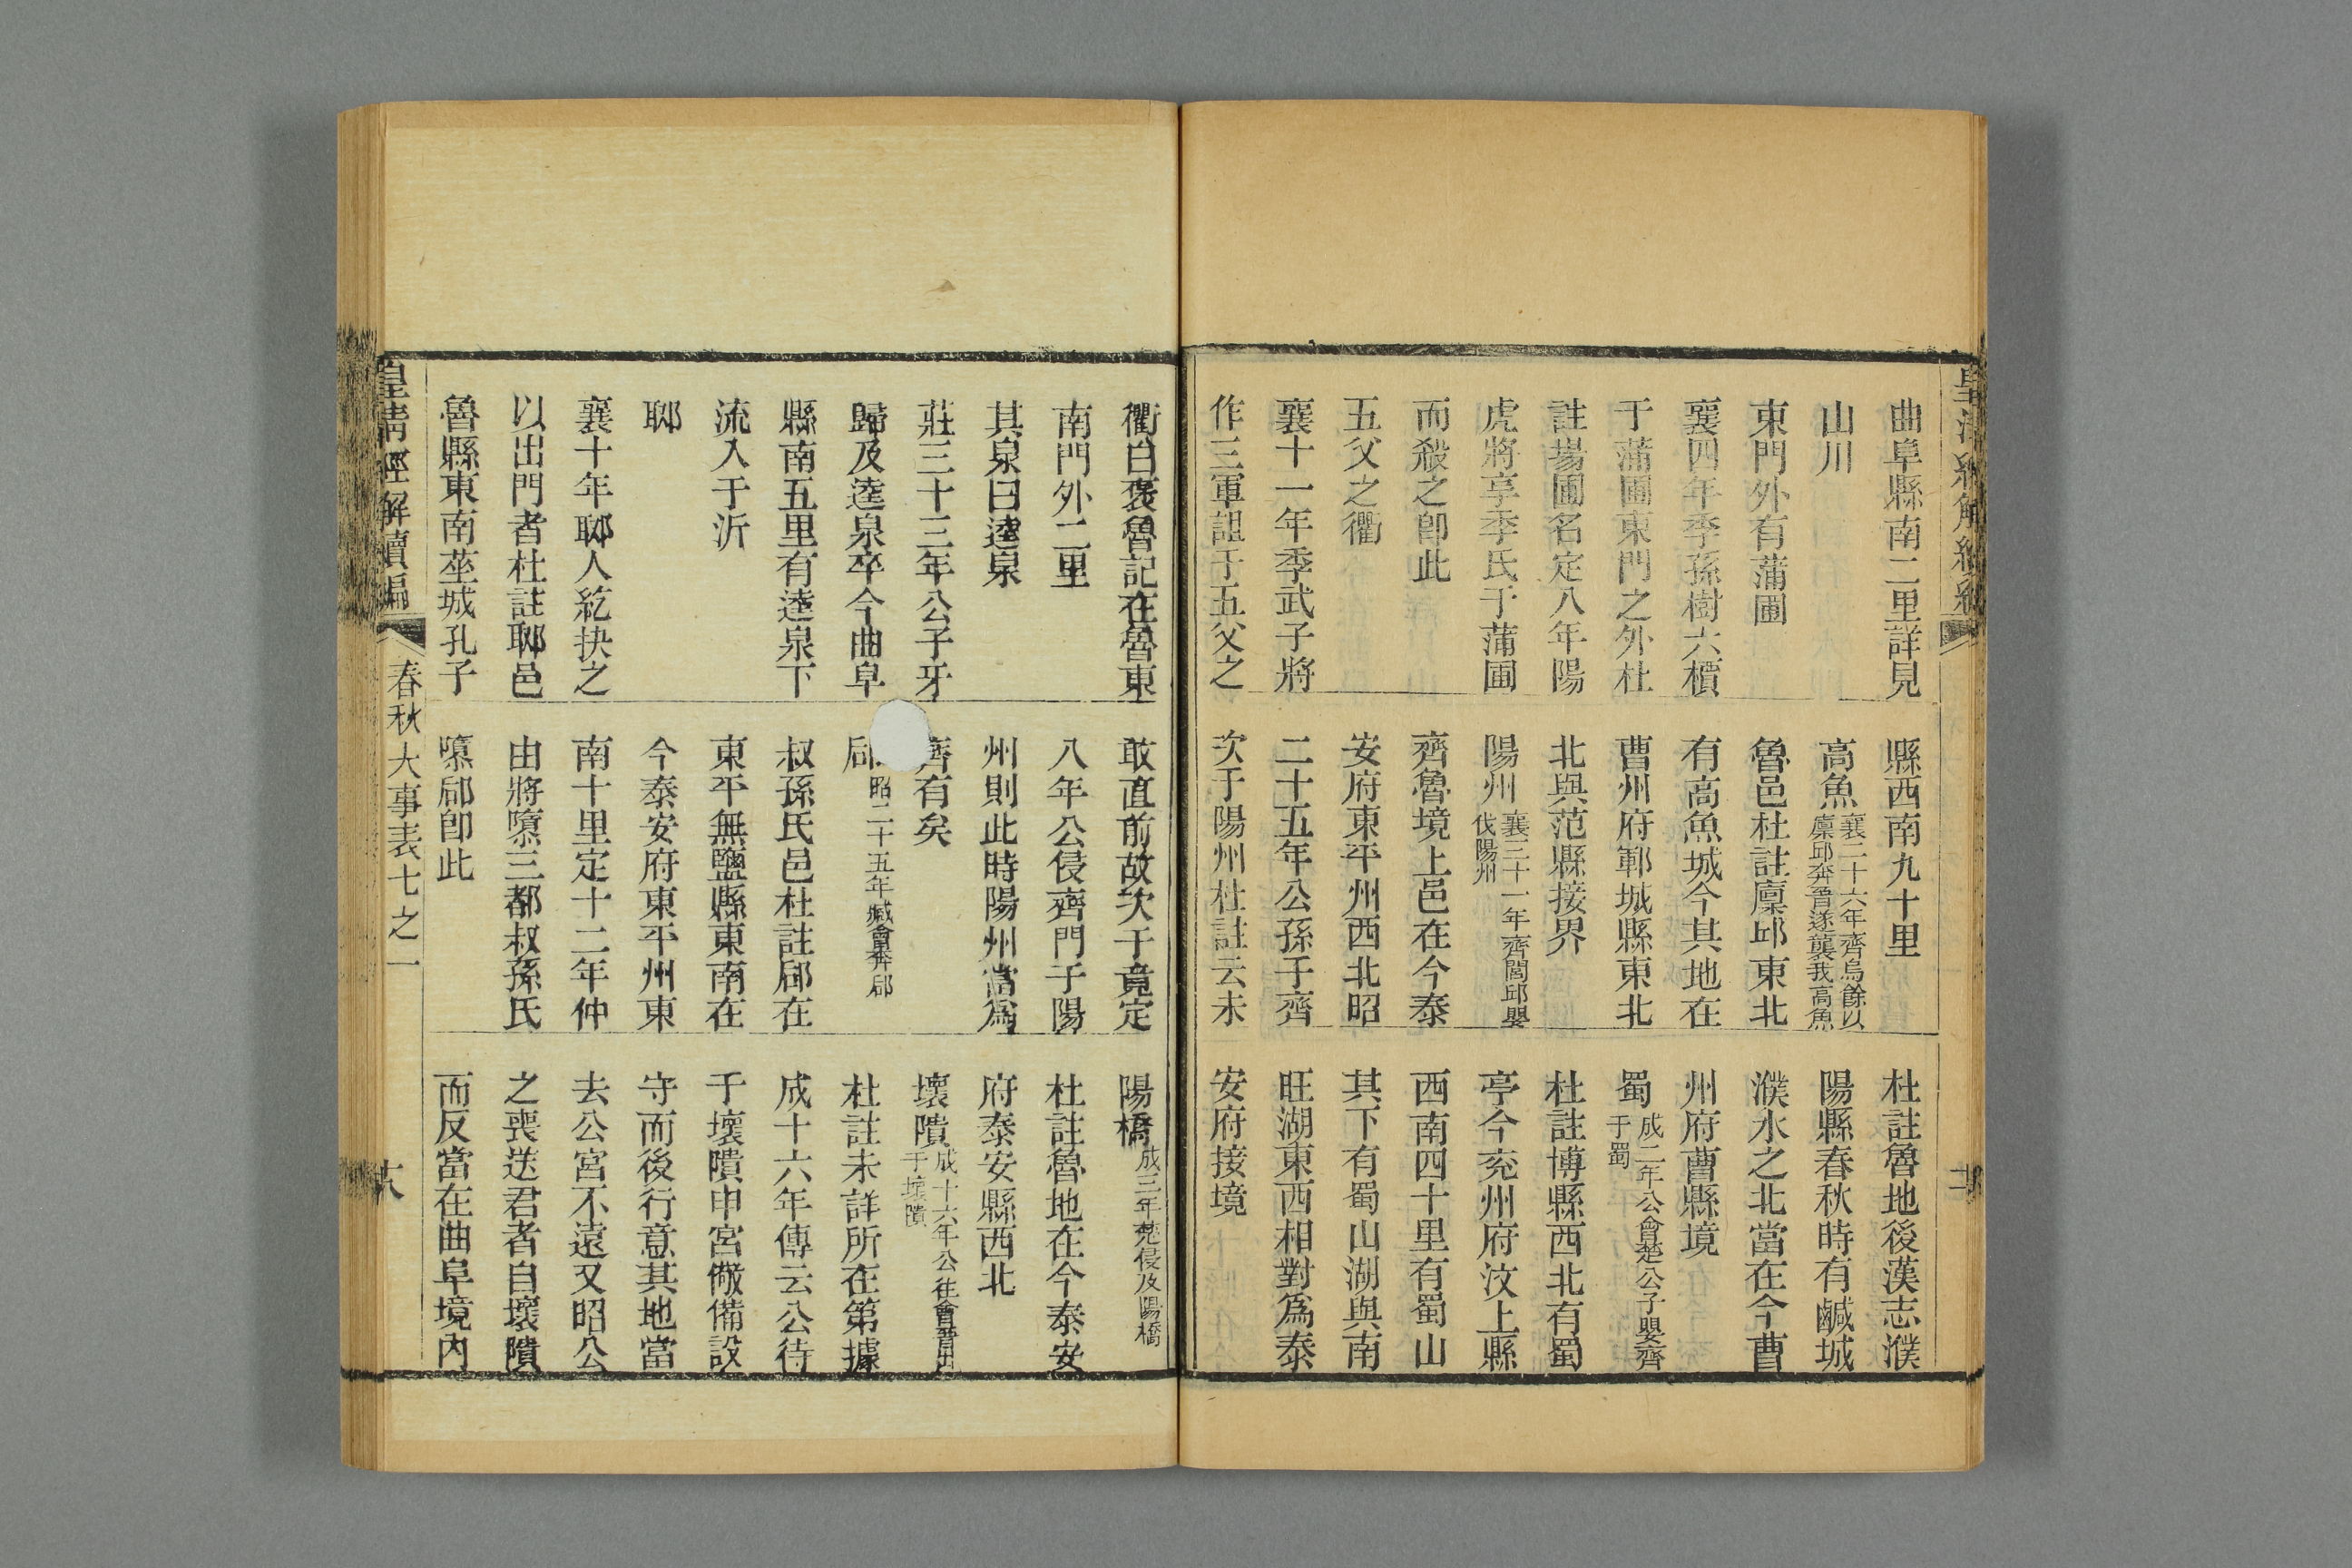 曲阜縣南二里詳見
山川
東門外有蒲圃
襄四年季孫樹六檟
于蒲圃東門之外杜
註場圃名定八年陽
虎將享季氏于蒲圃
而殺之卽此
五父之衢
襄十一年季武子將
作三軍詛于五父之
縣西南九十里
高魚襄二十六年齊烏餘以廩邱奔晉遂襲我高魚
魯邑杜註廩邱東北
有高魚城今其地在
曹州府鄆城縣東北
北與范縣接界
陽州襄三十一年齊閭邱嬰伐陽州
齊魯境上邑在今泰
安府東平州西北昭
二十五年公孫于齊
次于陽州杜註云未
杜註魯地後漢志濮
陽縣春秋時有鹹城
濮水之北當在今曹
州府曹縣境
蜀成二年公會楚公子嬰齊于蜀
杜註博縣西北有蜀
亭今兗州府汶上縣
西南四十里有蜀山
其下有蜀山湖與南
旺湖東西相對爲泰
安府接境
衢白褒魯記在魯東
南門外二里
其泉曰逵泉
莊三十三年公子牙
歸及逵泉卒今曲阜
縣南五里有逵泉下
流入于沂
郰
襄十年郰人紇抉之
以出門者杜註郰邑
魯縣東南莝城孔子
敢直前故次于竟定
八年公侵齊門于陽
州則此時陽州當爲
齊有矣
郈昭二十五年臧會奔郈
叔孫氏邑杜註郈在
東平無鹽縣東南在
今泰安府東平州東
南十里定十二年仲
由將隳三都叔孫氏
隳郈卽此
陽橋成三年楚侵及陽橋
杜註魯地在今泰安
府泰安縣西北
壞隤成十六年公往會晉出于壞隤
杜註未詳所在第據
成十六年傳云公待
于壞隤申宮儆備設
守而後行意其地當
去公宮不遠又昭公
之喪送君者自壞隤
而反當在曲阜境內
皇清經解續編
春秋大事表七之一